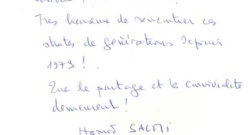 Très heureux de rencontrer ces
strates de générations depuis
1979 !
Que le partage et la convivialité
demeurent !
Hamid SALMI